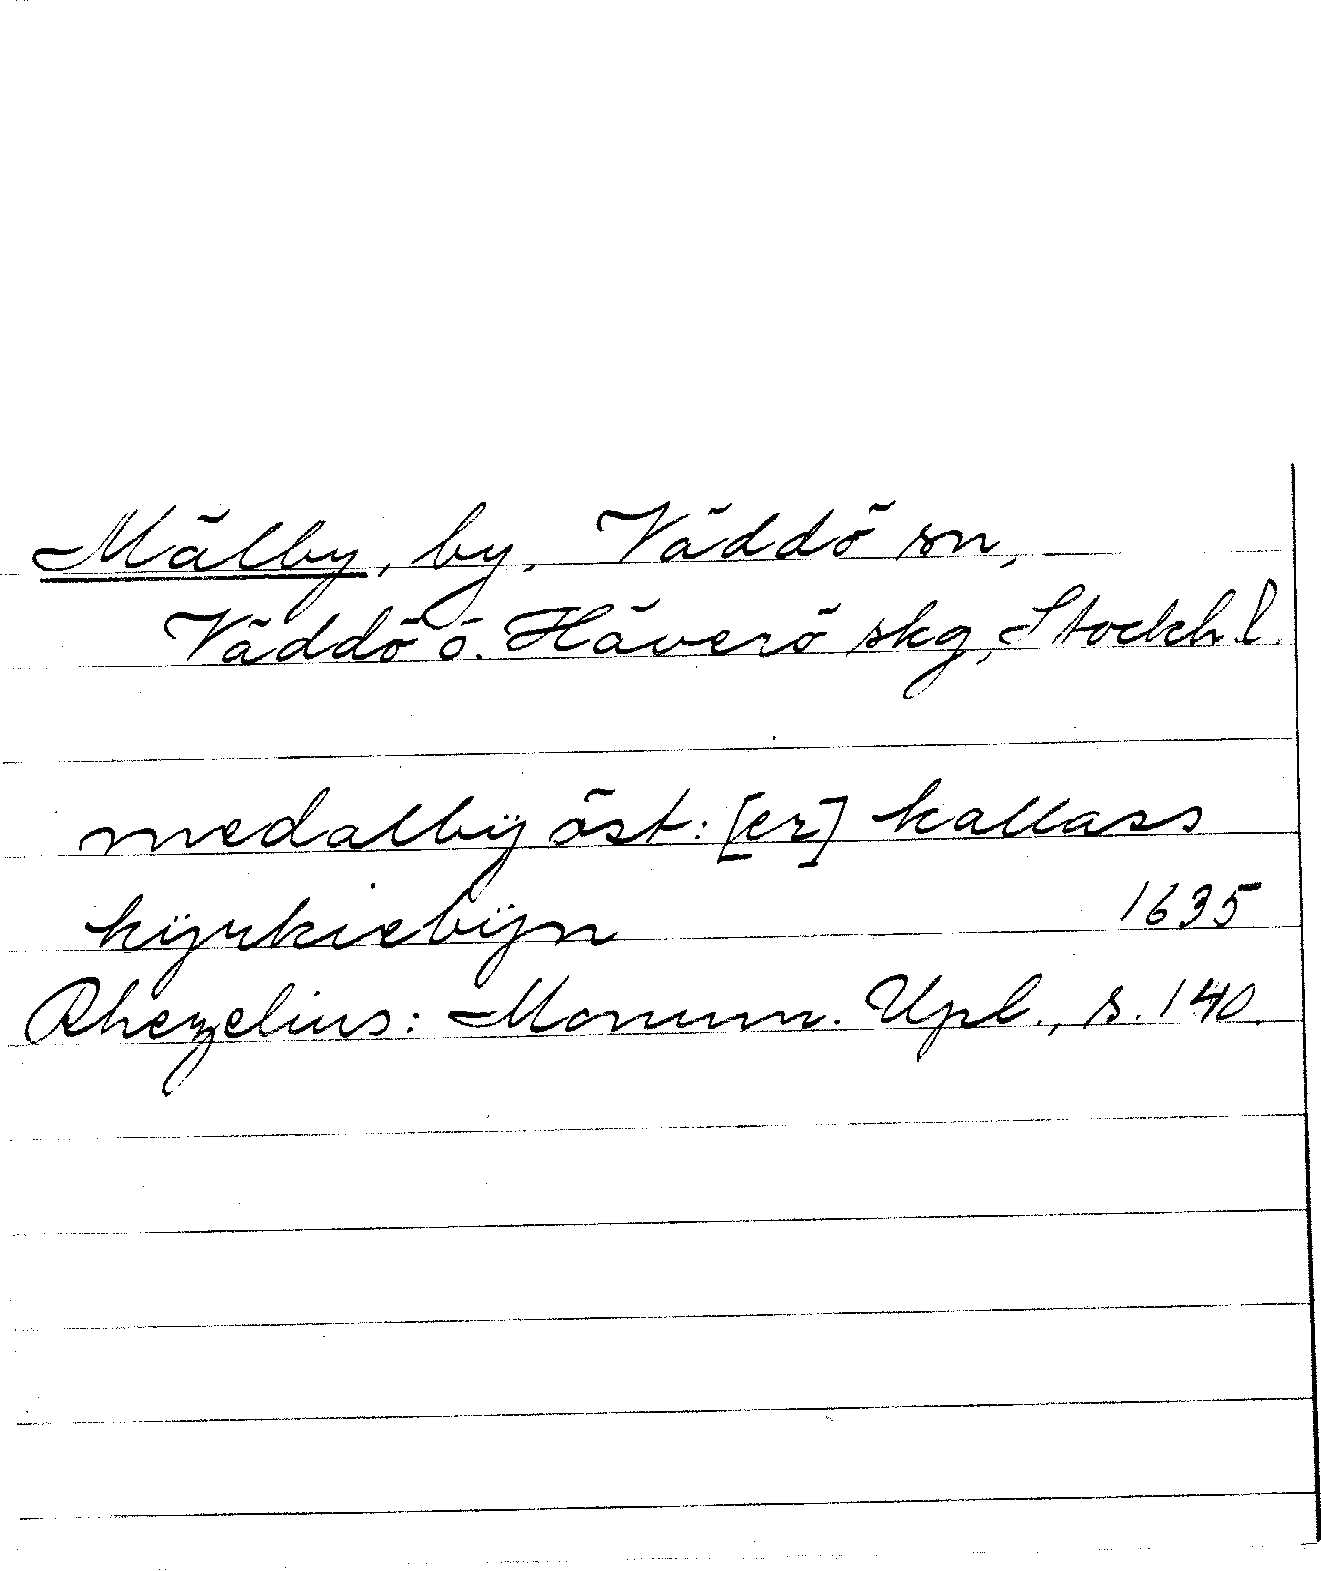 Mälby, by, Väddö sn,
Väddö o. Häverö skg, Stockh. l.
medalbÿ öst: [er] kallass
kÿrkiebÿn 1635
Rhezelius: Monum. Upl., s. 140.